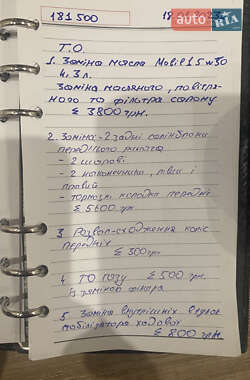 181 500
AUTO RIA
Т.О.
1. Заміна масла Mobil 1 5w30
4.3л.
Заміна масляного, повітря-
ного то фільтра салону
≤ 3800грн.
2. Заміна - 2 задні салінблоки
переднього ричага
- 2 шарові
- 2 наконечника, лівий і
правий
- тормозні колодки передні
≤ 5600 грн
3. Розвал-сходження коліс
передніх
≤ 300грн
4. ТО газу ≤ 500 грн.
Із заміной фільтра
5. Заміна внутрішніх втулок
стабілізатора ходової
≤ 800 грн.